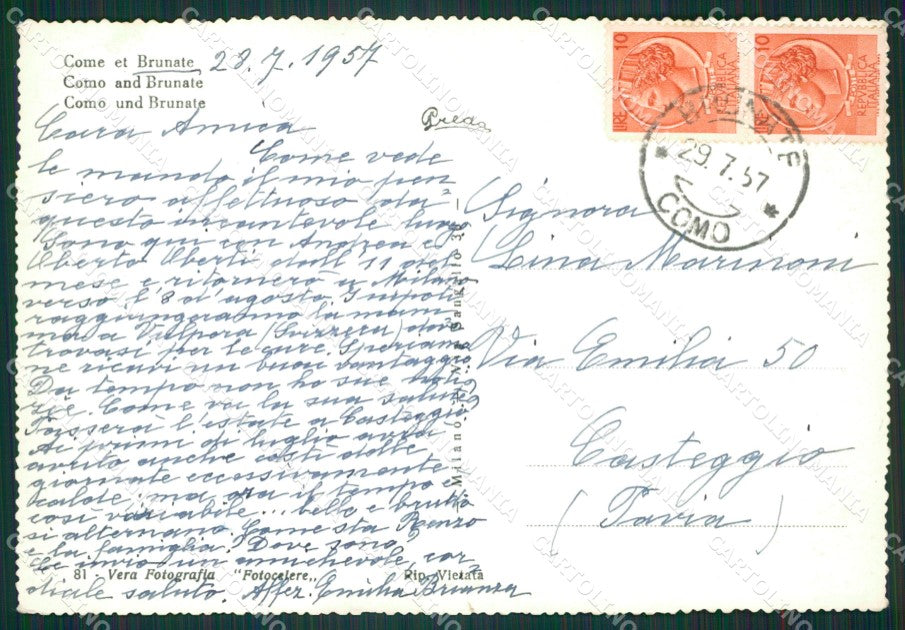 Come et Brunate 28.7.1957
Como and Brunate
Como und Brunate
Preda
Cara Amica
Come vede
le mando il mio pen
siero affettuoso da
questo incantevole luogo
Sono qui con Andrea e
Uberto Uberti dall'11 del
mese e ritornerò a Milano
verso l'8 d'agosto. I nipoti
raggiungeranno la mam
ma a Vulpera (Svizzera) dove
trovasi per le cure. Speriamo
ne ricavi un buon vantaggio
Da tempo non ho sue noti
zie. Come va la sua salute?
Passerà l'estate a Casteggio?
Ai primi di luglio avrà
avuto anche costì delle
giornate eccessivamente
calde, ma ora il tempo è
così variabile... belle e brutto
si alternano. Come sta Renzo
e la famiglia? Dove sono?
Le invio un amichevole cor
diale saluto. Affez. Emilia Brianza
81 - Vera Fotografia "Fotocelere,, Rip. Vietata
Milano, Via N. da Sangallo 38
10 LIRE REPVBBLICA ITALIANA
10 LIRE REPVBBLICA ITALIANA
BRUNATE
29.7.57
COMO
Signora
Lina Marinoni
Via Emilia 50
Casteggio
(Pavia)
CARTOLINOMANIA